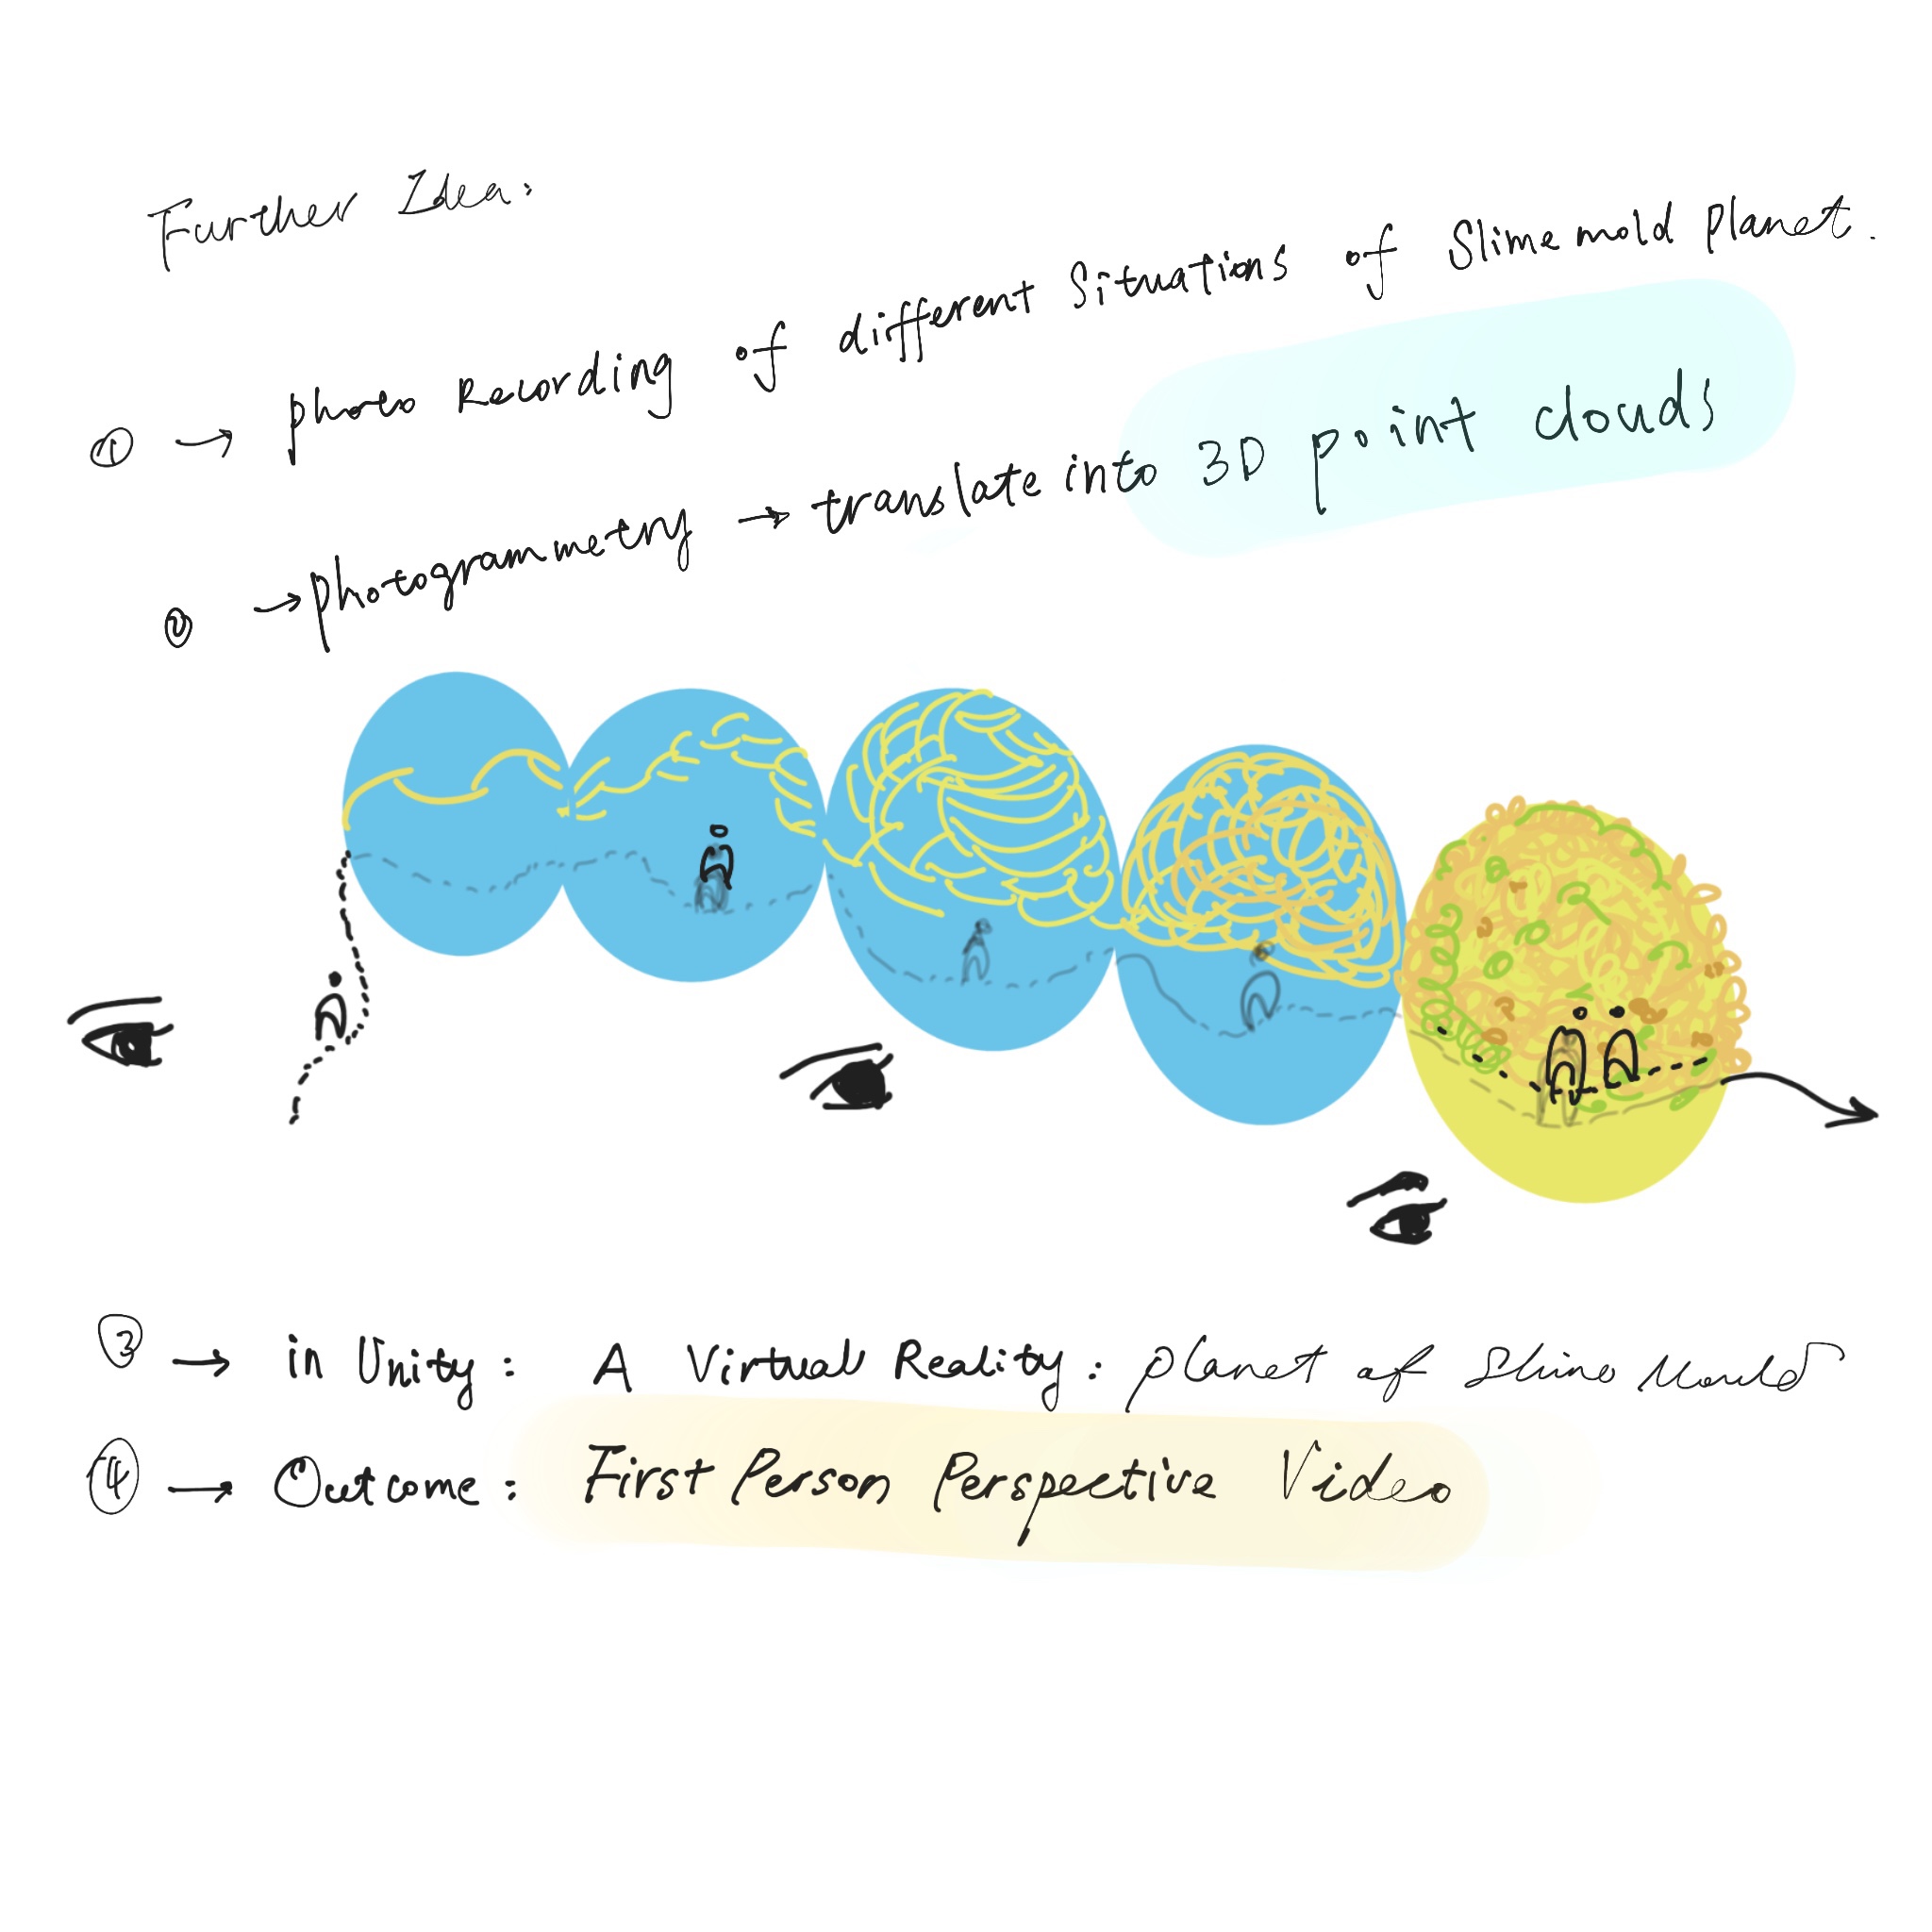 Further Idea:
① → photo Recording of different Situations of Slime mold Planet.
② → photogrammetry → translate into 3D point clouds
③ → in Unity: A Virtual Reality: Planet of Slime Mould
④ → Outcome: First Person Perspective Video